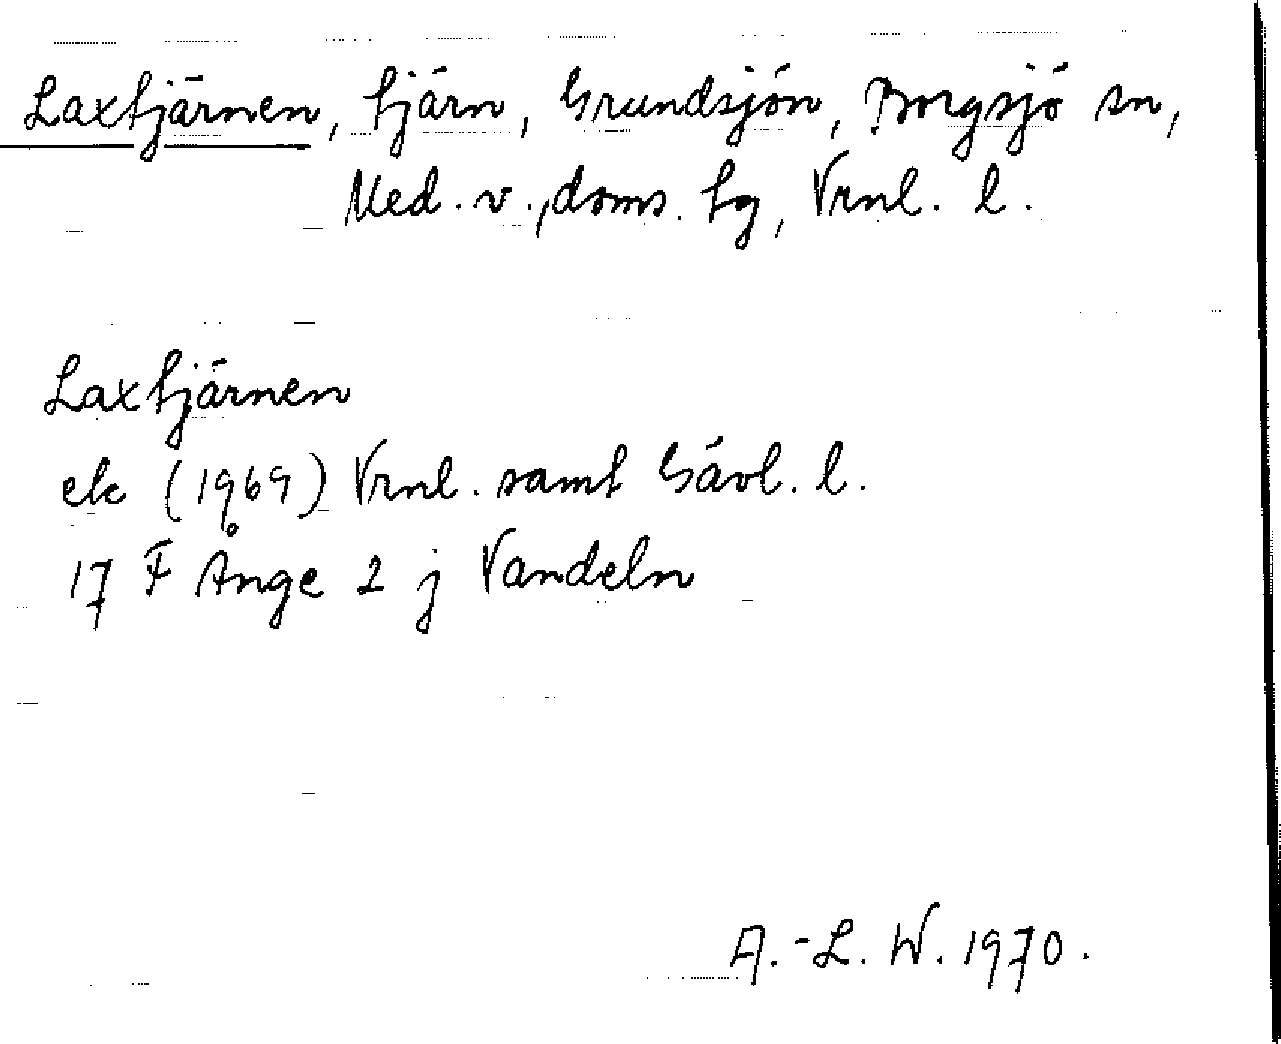 Laxtjärnen, tjärn, Grundsjön, Borgsjö sn,
Med. v., doms. tg, Vrnl. l.
Laxtjärnen
ek (1969) Vrnl. samt Gävl. l.
17 F Ånge 2 j Vandeln
A.-L. W. 1970.